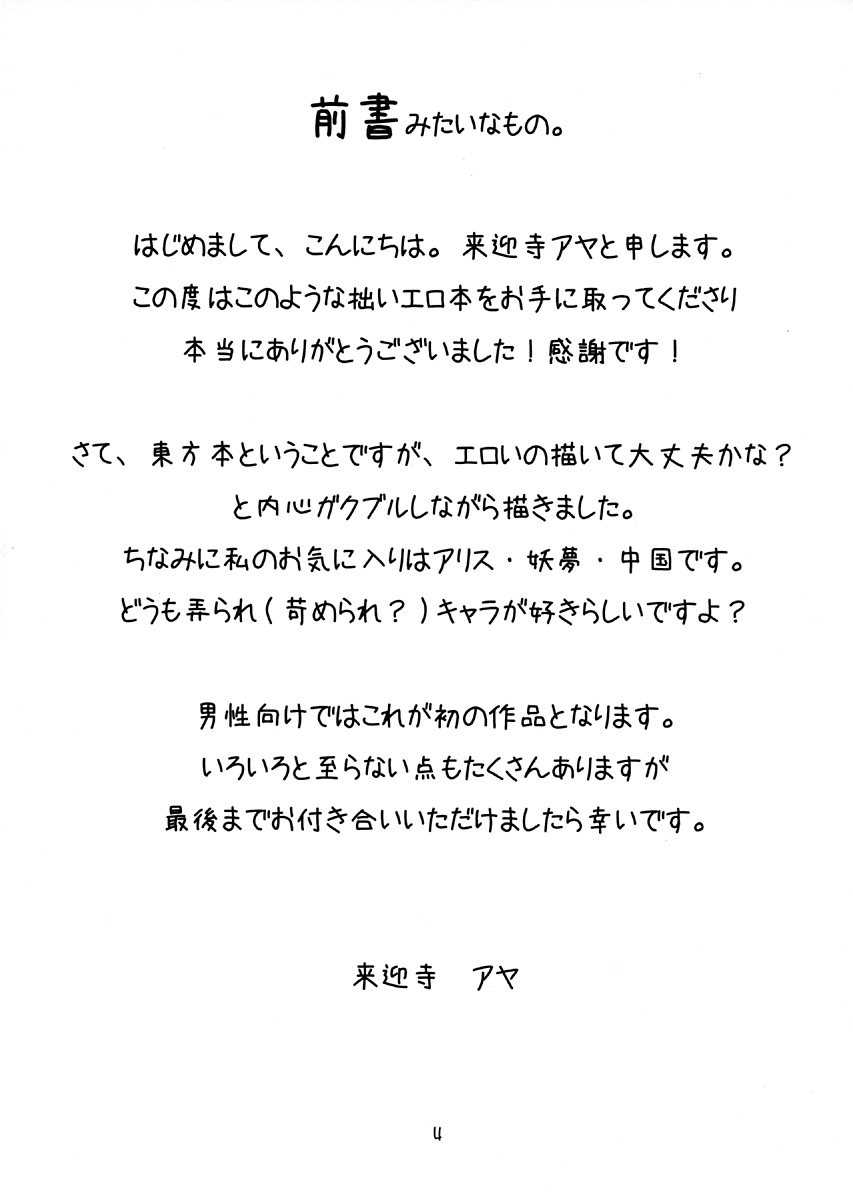 前書みたいなもの。
はじめまして、こんにちは。来迎寺アヤと申します。
この度はこのような拙いエロ本をお手に取ってくださり
本当にありがとうございました！感謝です！
さて、東方本ということですが、エロいの描いて大丈夫かな？
と内心ガクブルしながら描きました。
ちなみに私のお気に入りはアリス・妖夢・中国です。
どうも弄られ(苛められ？)キャラが好きらしいですよ？
男性向けではこれが初の作品となります。
いろいろと至らない点もたくさんありますが
最後までお付き合いいただけましたら幸いです。
来迎寺　アヤ
4